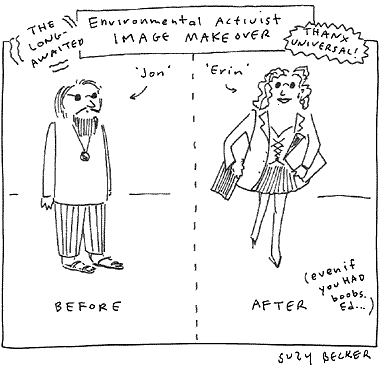 THE
LONG-
AWAITED
Environmental Activist
IMAGE MAKEOVER
THANX
UNIVERSAL!
'Jon'
'Erin'
BEFORE
AFTER
(even if
you HAD
boobs,
Ed...)
SUZY BECKER